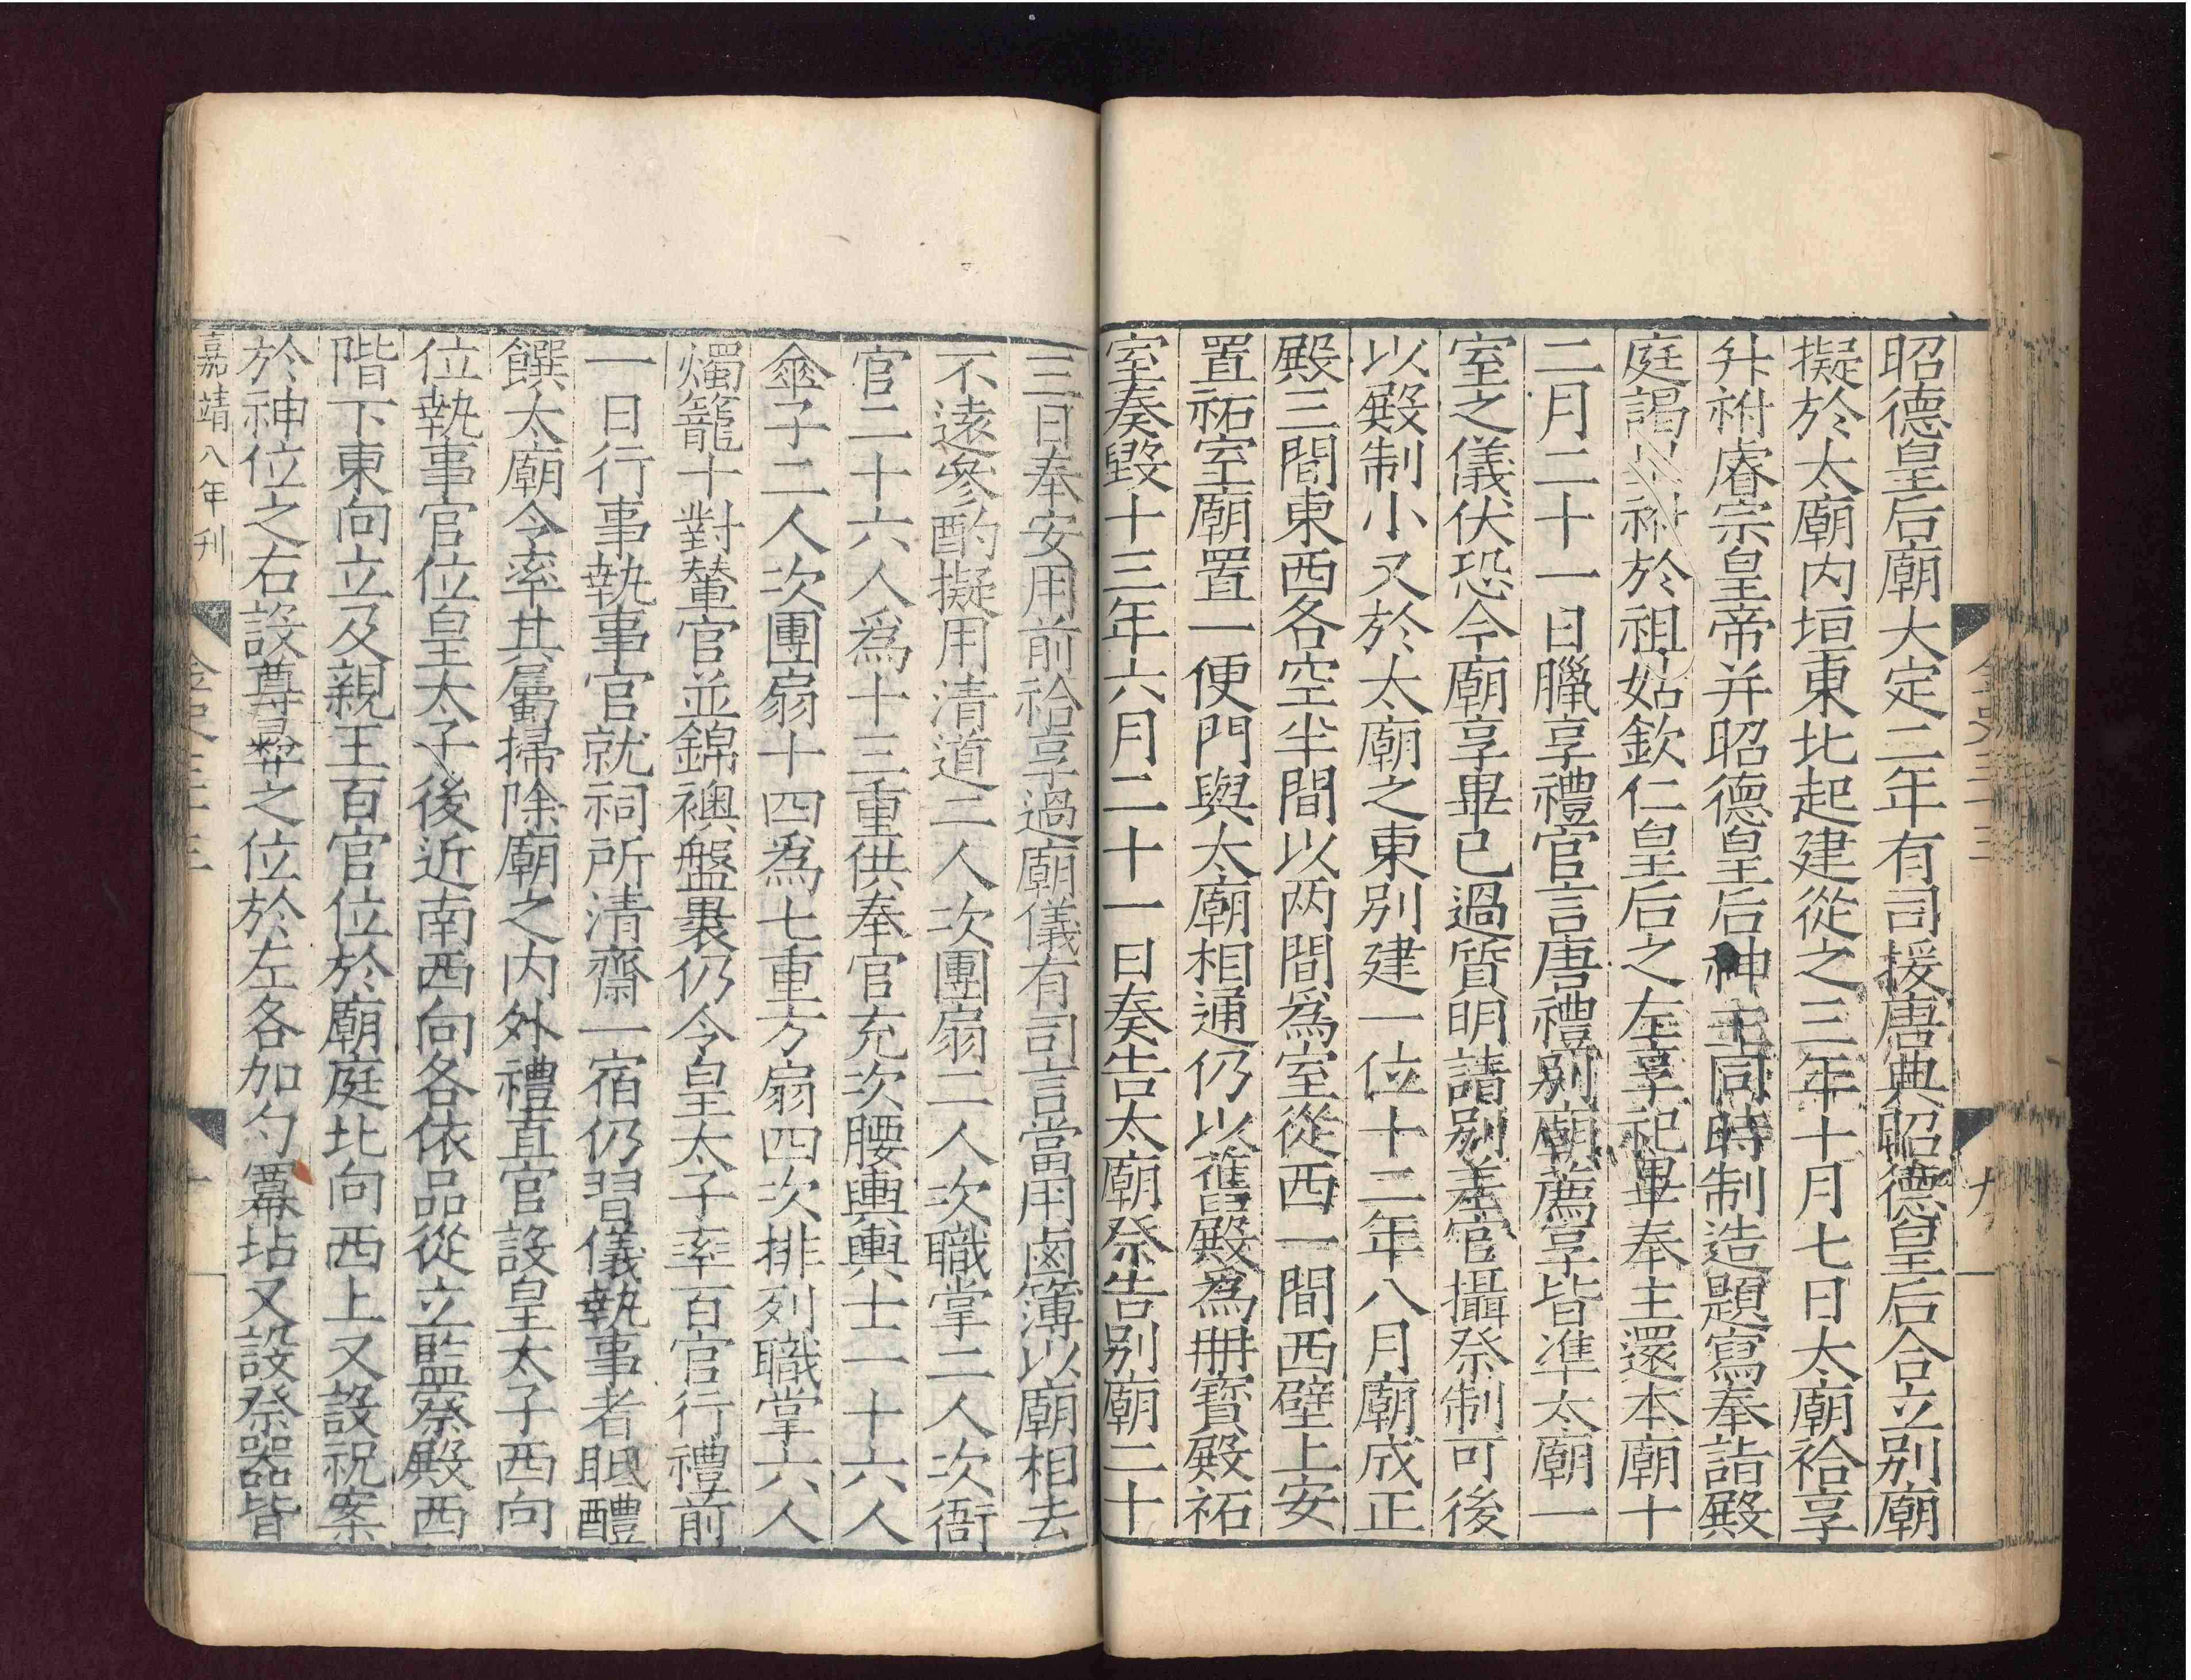 昭德皇后廟大定二年有司援唐典昭德皇后合立别廟
擬於太廟内垣東北起建從之三年十月七日太廟祫享
升祔睿宗皇帝并昭德皇后神主同時制造題寫奉詣殿
庭謁祔於祖姑欽仁皇后之左享祀畢奉主還本廟十
二月二十一日臘享禮官言唐禮别廟薦享皆準太廟一
室之儀伏恐今廟享畢已過質明請别差官攝祭制可後
以殿制小又於太廟之東别建一位十二年八月廟成正
殿三間東西各空半間以两間爲室從西一間西壁上安
置祏室廟置一便門與太廟相通仍以舊殿爲冊寳殿祏
室奏毀十三年六月二十一日奏告太廟祭告别廟二十
金史三十三
九
三日奉安用前祫享過廟儀有司言當用鹵簿以廟相去
不遠參酌擬用清道二人次團扇二人次職掌二人次衙
官二十六人爲十三重供奉官充次腰輿輿士一十六人
傘子二人次團扇十四爲七重方扇四次排列職掌六人
燭籠十對輦官並錦襖盤裹仍令皇太子率百官行禮前
一日行事執事官就祠所清齋一宿仍習儀執事者眡醴
饌太廟令率其屬掃除廟之内外禮直官設皇太子西向
位執事官位皇太子後近南西向各依品從立監察殿西
階下東向立及親王百官位於廟庭北向西上又設祝案
於神位之右設尊彞之位於左各加勺冪坫又設祭器皆
嘉靖八年刊
金史三十三